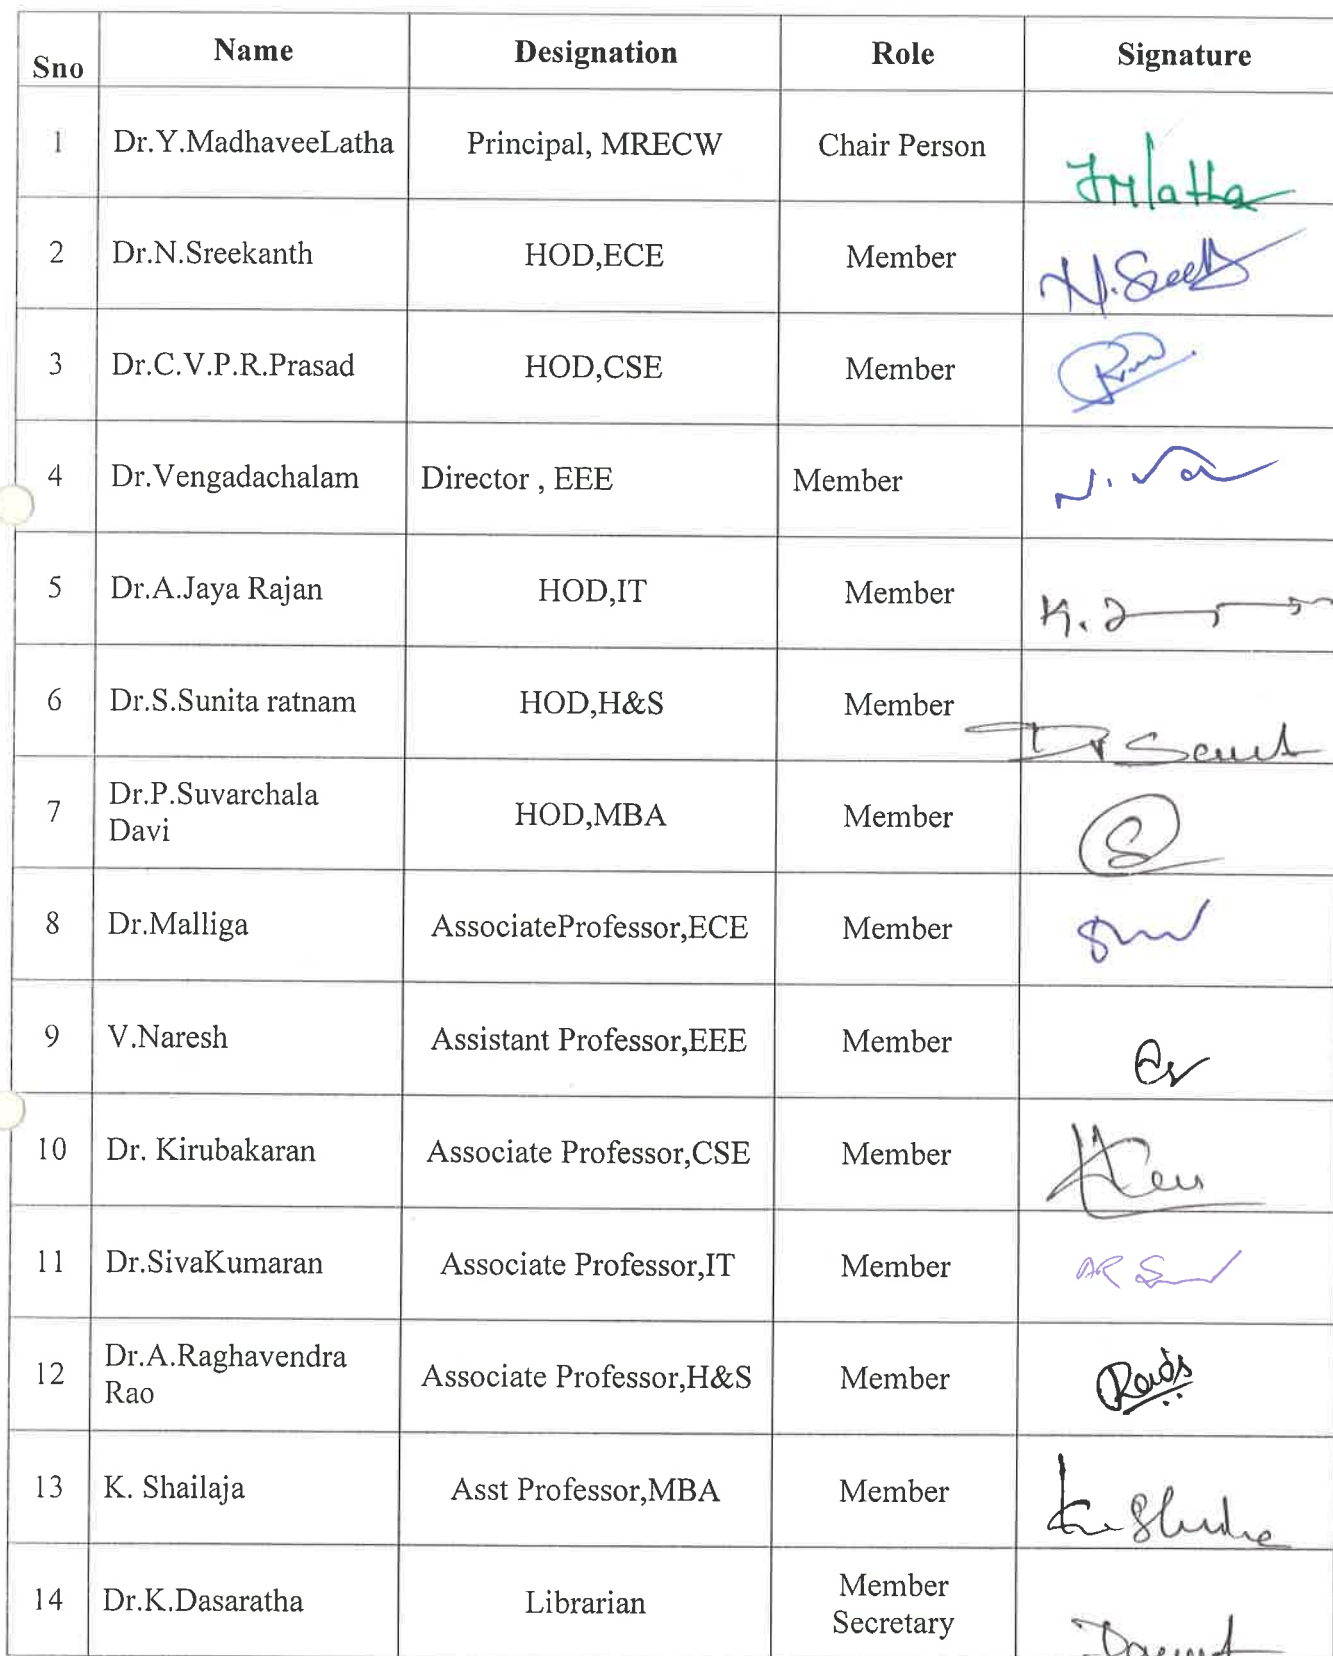 Sno Name Designation Role Signature
1 Dr.Y.MadhaveeLatha Principal, MRECW Chair Person
2 Dr.N.Sreekanth HOD,ECE Member
3 Dr.C.V.P.R.Prasad HOD,CSE Member
4 Dr.Vengadachalam Director , EEE Member
5 Dr.A.Jaya Rajan HOD,IT Member
6 Dr.S.Sunita ratnam HOD,H&S Member
7 Dr.P.Suvarchala
Davi HOD,MBA Member
8 Dr.Malliga AssociateProfessor,ECE Member
9 V.Naresh Assistant Professor,EEE Member
10 Dr. Kirubakaran Associate Professor,CSE Member
11 Dr.SivaKumaran Associate Professor,IT Member
12 Dr.A.Raghavendra
Rao Associate Professor,H&S Member
13 K. Shailaja Asst Professor,MBA Member
14 Dr.K.Dasaratha Librarian Member
Secretary